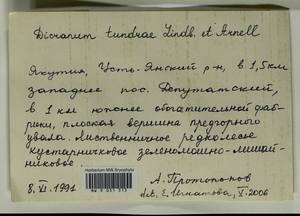 Dicranum tundrae Lindb. et Arnell
Якутия, Усть-Янский р-н, в 1,5 км
западнее пос. Депутатский,
в 1 км южнее обогатительной фаб-
рики, плоская вершина предгорного
увала. Лиственничное редколесье
кустарничковое зеленомошно-лишай-
никовое.
8.VI.1991
Herbarium MW, Bryophyta
А. Протопопов
det. E. Игнатова, V.2006